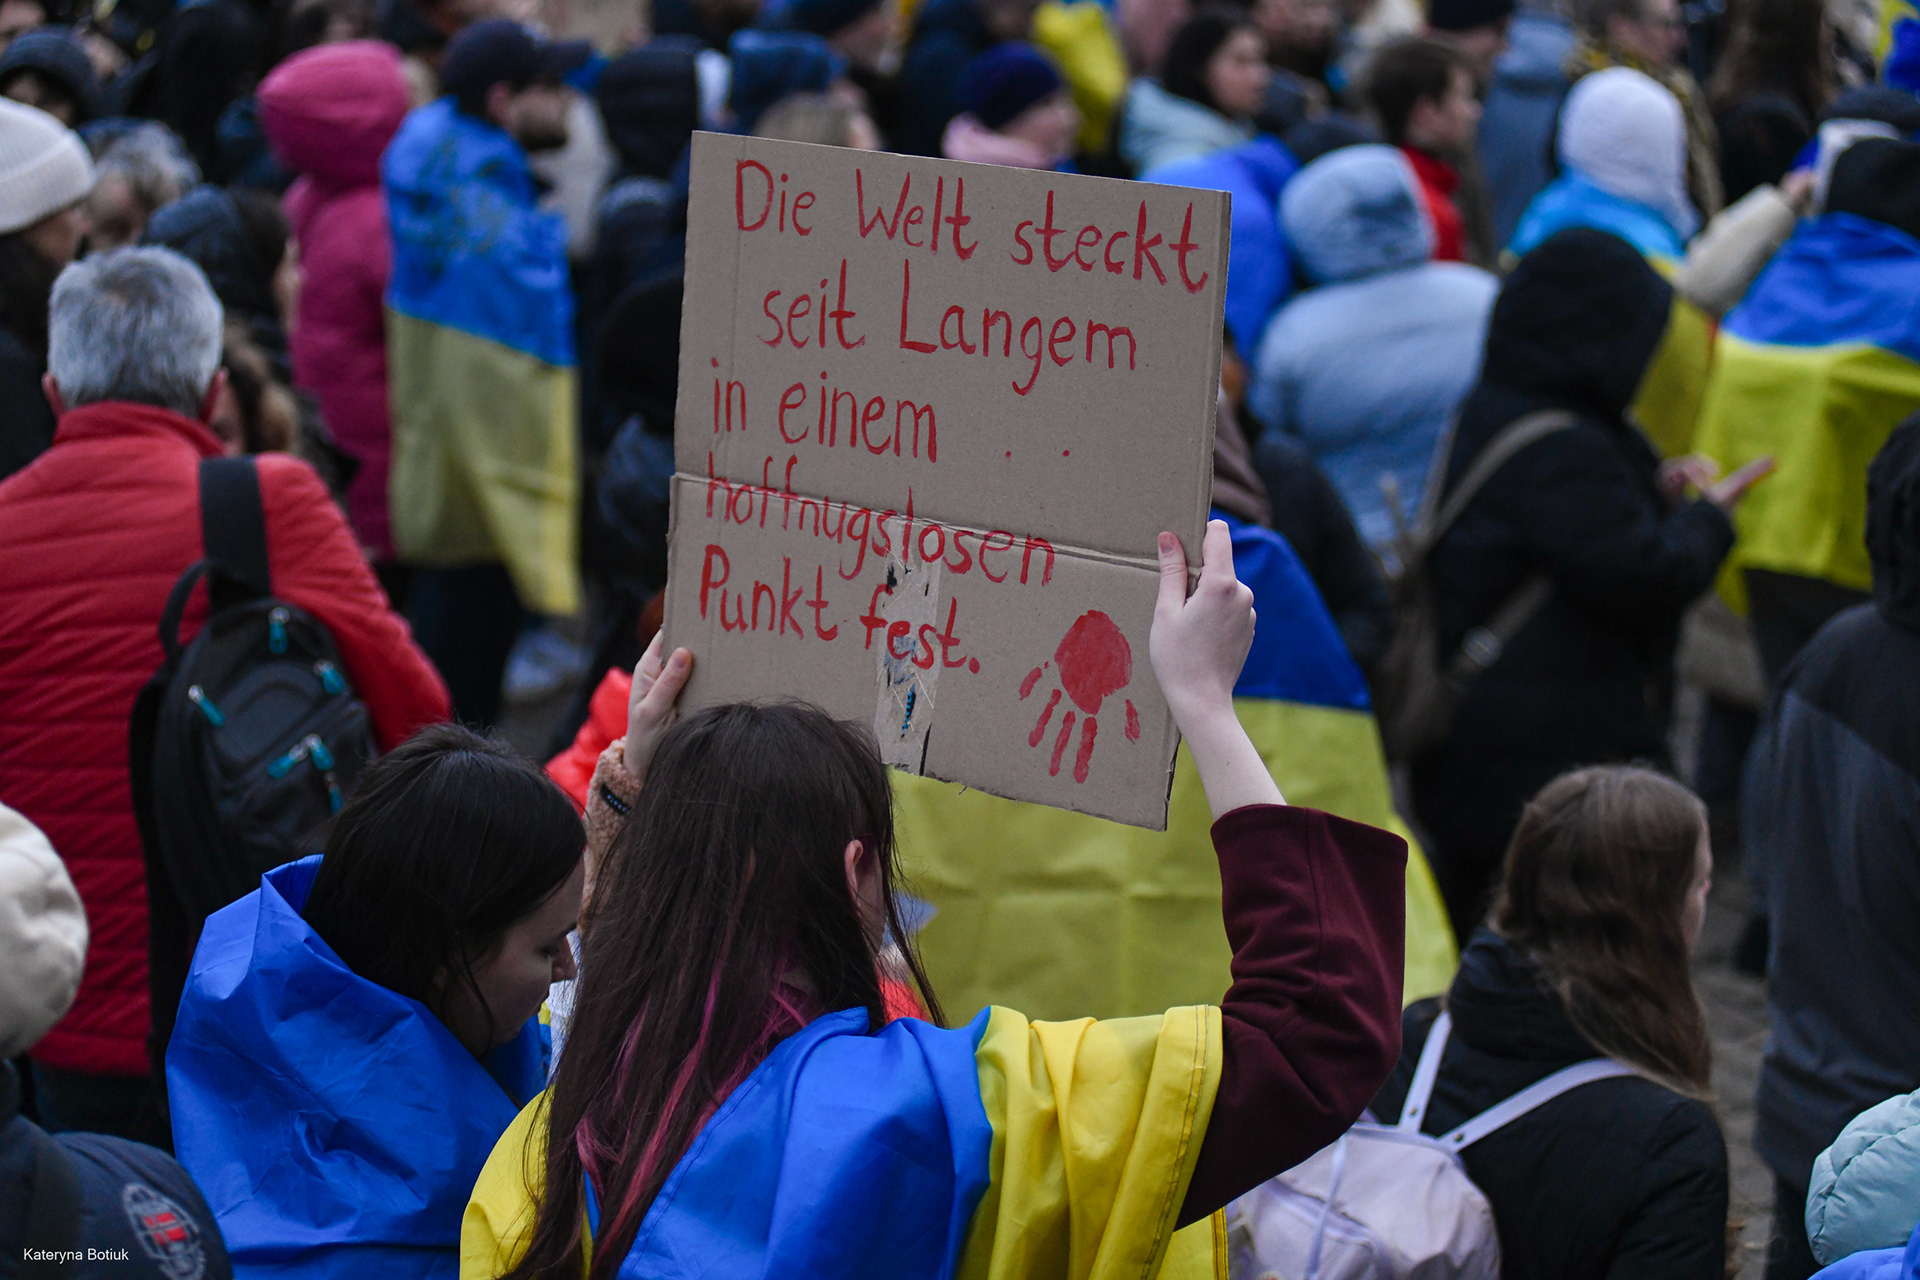 Die Welt steckt
seit Langem
in einem . .
hoffnugslosen
Punkt fest.
Kateryna Botiuk